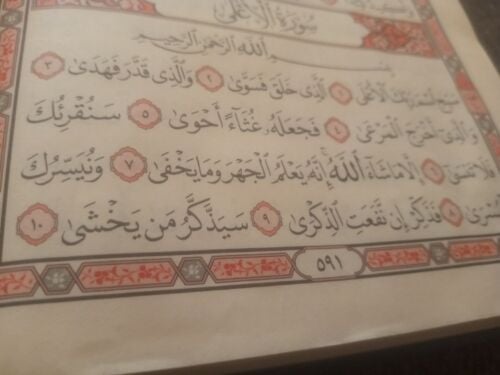 سُورَةُ الْأَعْلَى
بِسْمِ اللَّهِ الرَّحْمَٰنِ الرَّحِيمِ
سَبِّحِ اسْمَ رَبِّكَ الْأَعْلَى ١ الَّذِي خَلَقَ فَسَوَّىٰ ٢ وَالَّذِي قَدَّرَ فَهَدَىٰ ٣
وَالَّذِي أَخْرَجَ الْمَرْعَىٰ ٤ فَجَعَلَهُ غُثَاءً أَحْوَىٰ ٥ سَنُقْرِئُكَ
فَلَا تَنسَىٰ ٦ إِلَّا مَا شَاءَ اللَّهُ إِنَّهُ يَعْلَمُ الْجَهْرَ وَمَا يَخْفَىٰ ٧ وَنُيَسِّرُكَ
لِلْيُسْرَىٰ ٨ فَذَكِّرْ إِن نَّفَعَتِ الذِّكْرَىٰ ٩ سَيَذَّكَّرُ مَن يَخْشَىٰ ١٠
٥٩١